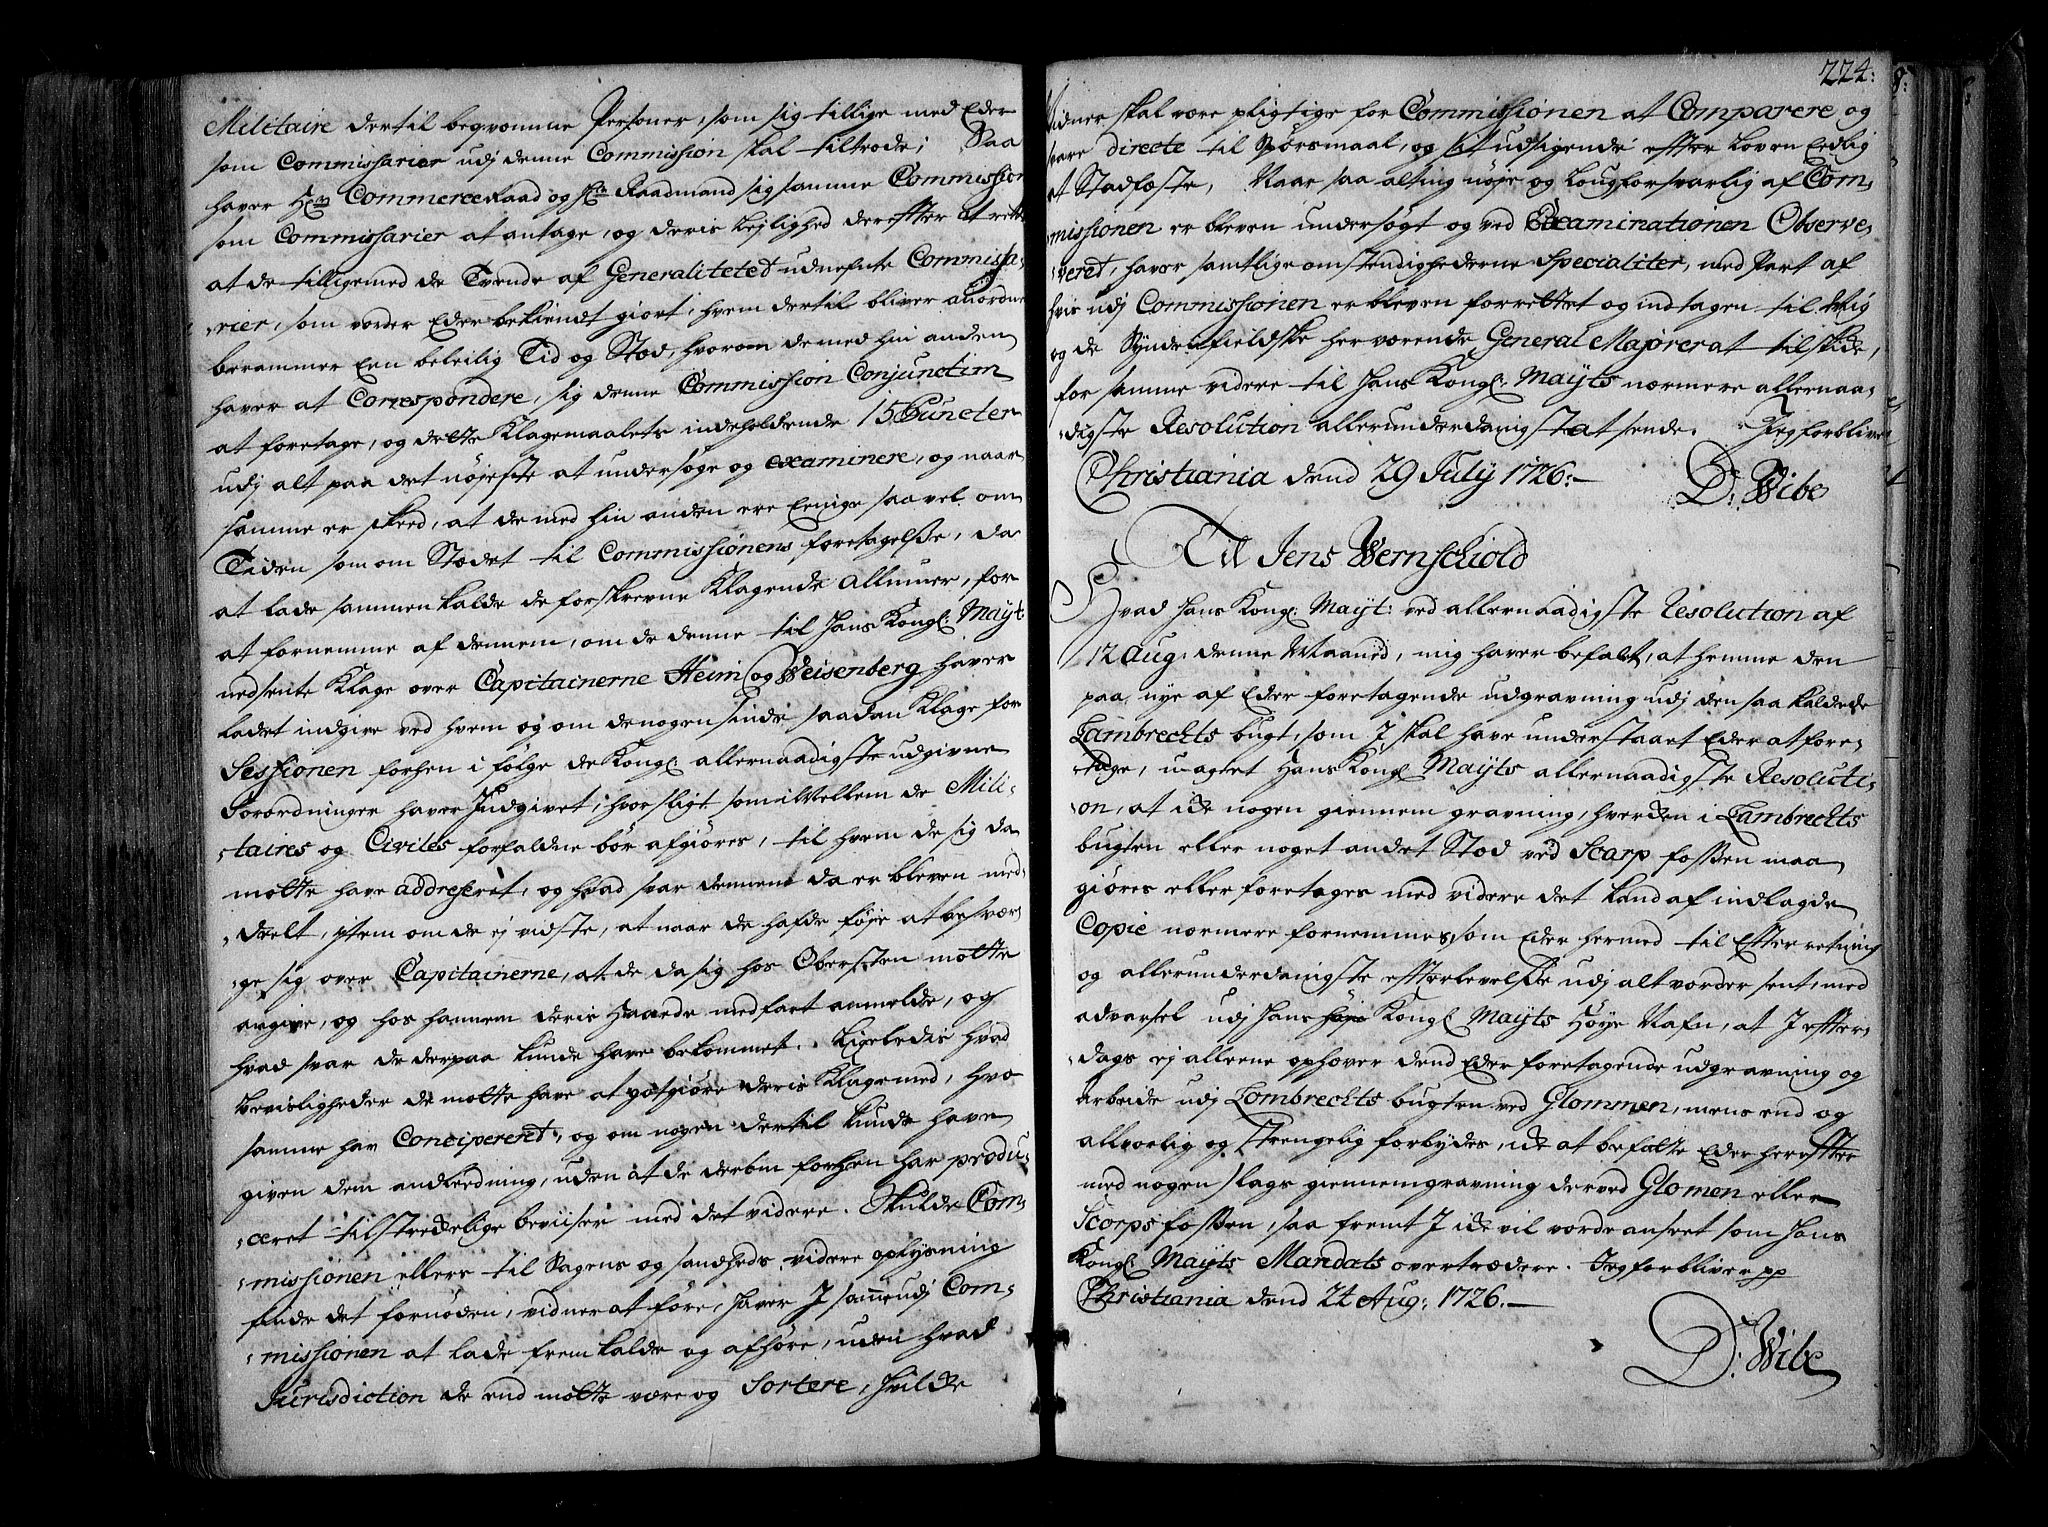 Militaire dertil beqvemme Persohner, som sig tillige med Eder
som Commissarier udj denne Commission skal tiltrede; Saa
haver Hr: CommerceRaad og Hr: Raadmand sig samme Commission
som Commissarier at antage, og deris lejlighed derefter at rette
at de tilligemed de Tvende af Generalitetet udnefnte Commissa-
-rier, som vorder Eder bekiendt giort, hvem dertil bliver anordnet
berammer Een beleilig Tid og Stæd, hvorom de med hin anden
haver at Correspondere, sig denne Commission Conjunctim
at foretage, og dette Klagemaalets indeholdende 15 Puncter
udj alt paa det nøjeste at undersøge og examinere, og naar
samme er skeed, at de med hin anden ere Eenige saa vel om
Tiden som om Stædet til Commissionens foretagelse, da
at lade sammenkalde de forskrevne Klagende Allmuer, for
at fornemme af dennem, om de denne til Hans Kongl: Mayt:
nedsente Klage over Capitainerne Heim og Weisenberg haver
ladet indgive ved hvem og om de nogensinde saadan Klage for
Sessionen forhen i følge de Kongl: allernaadigste udgivne
Forordninger haver Indgivet, hvor sligt som imellem de Mili-
-taires og Civiles forfaldne bør afgiøres, til hvem de sig da
motte have addresseret, og hvad svar dennem da er bleven med-
-deelt, item om de ej vidste, at naar de hafde føje at besvær-
-ge sig over Capitainerne, at de da sig hos Obersten motte
angive, og hos hannem deris Haarde medfart anmelde, og
hvad svar de derpaa kunde have bekommet. Ligeledis hvad
beviisligheder de motte have at godtgiøre deris Klage med, hvo
samme har Conciperet, og om nogen dertil kunde have
given dem anledning, uden at de derom forhen har produ-
-ceret tilstreckelige beviiser med det videre. Skulde Com-
-missionen ellers til Sagens og sandheds videre oplysning
finde det fornøden, vidner at føre, haver I samme udj Com-
-missionen at lade fremkalde og afhøre, uden hvad
Jurisdiction de end motte være og Sortere, hvilcke
224:
Vidner skal være pligtige for Commissionen at Comparere og
svare directe til Spørsmaal, og sit udsigende efter Loven Eedlig
at Stadfæste, Naar saa alting nøje og Lougforsvarlig af Com-
missionen er bleven undersøgt og ved Examinationen Observe-
-veret, haver samtlige omstendighederne Specialiter, med Part af
hvis udj Commissionen er bleven forrettet og indtagen til Mig
og de Syndenfieldske herværende General Majorer at tilskicke,
for samme videre til Hans Kongl: Mayts nærmere allernaa-
-digste Resolution allerunderdanigst at sende. Jeg forbliver
Christiania dend 29 July 1726.
D: Wibe
Til Jens Wernschiold
Hvad Hans Kongl: Mayt: ved allernaadigste Resolution af
12 Aug: denne Maaned, mig haver befalt, at hemme den
paa nye af Eder foretagende udgravning udj den saa kaldede
Lambrechts bugt, som I skal have understaaet Eder at fore-
-tage, uagtet Hans Kongl: Mayts allernaadigste Resoluti-
-on, at icke nogen giennemgravning, hvercken i Lambrechts
bugten eller noget andet Stæd ved Scarp fossen maa
giøres eller foretages med videre det kand af indlagde
Copie nærmere fornemmes, som Eder hermed til Efterretning
og allerunderdanigste efterlevelse udj alt vorder sent, med
advarsel udj Hans høje Kongl: Mayts Høye Nafn, at I efter-
-dags ej alleene ophæver dend Eder foretagende udgravning og
arbeide udj Lombrechts bugten ved Glommen, mens end og
allvorlig og strengelig forbydes, icke at befatte Eder herefter
med nogen slags giennemgravning derved Glomen eller
Scorps fossen, saa fremt I icke vil vorde anseet som Hans
Kongl: Mayts Mandats overtrædere. Jeg forbliver pp
Christiania dend 24 Aug: 1726.
D: Wibe